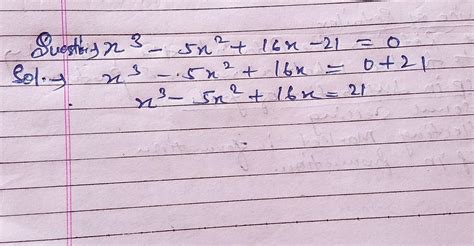 Question→ x³ - 5x² + 16x - 21 = 0
Sol.→ x³ - 5x² + 16x = 0 + 21
x³ - 5x² + 16x = 21